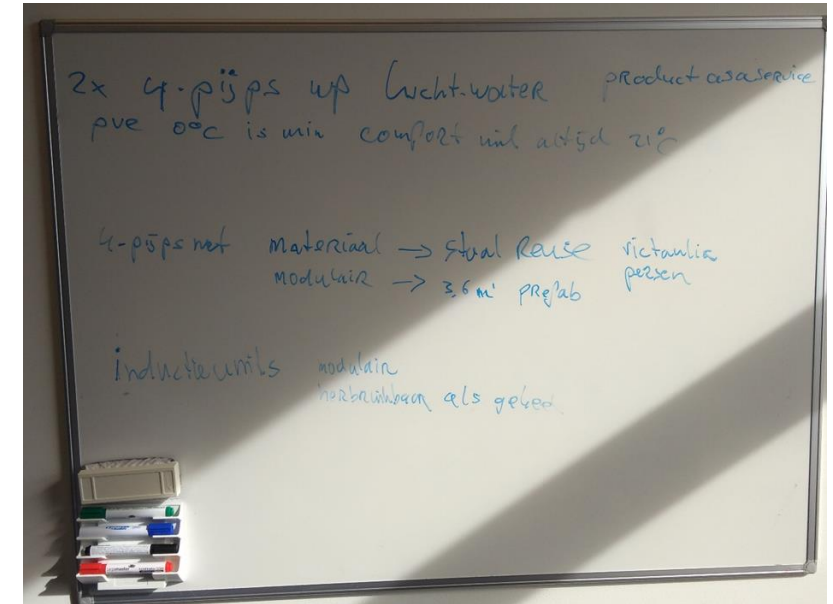 2x 4-pijps wp lucht-water product as a service
pve 0°C is min comfort altijd 21°C
4-pijps net materiaal → staal Reuse victaulic
modulair → 3,6 m' prefab persen
inductieunits modulair
herbruikbaar als geheel